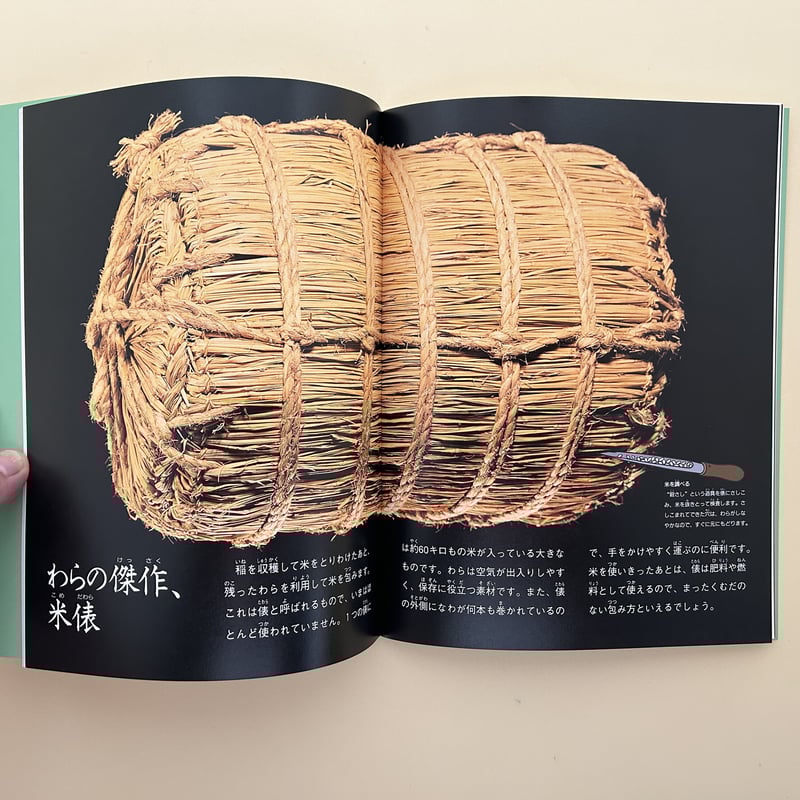 わらの傑作、
米俵
稲を収穫して米をとりわけたあと、
残ったわらを利用して米を包みます。
これは俵と呼ばれるもので、いまはほ
とんど使われていません。1つの俵に
は約60キロもの米が入っている大きな
ものです。わらは空気が出入りしやす
く、保存に役立つ素材です。また、俵
の外側になわが何本も巻かれているの
で、手をかけやすく運ぶのに便利です。
米を使いきったあとは、俵は肥料や燃
料として使えるので、まったくむだの
ない包み方といえるでしょう。
米を調べる
"穀さし"という道具を俵にさしこ
み、米を抜きとって検査します。さ
しこまれてできた穴は、わらがしな
やかなので、すぐに元にもどります。